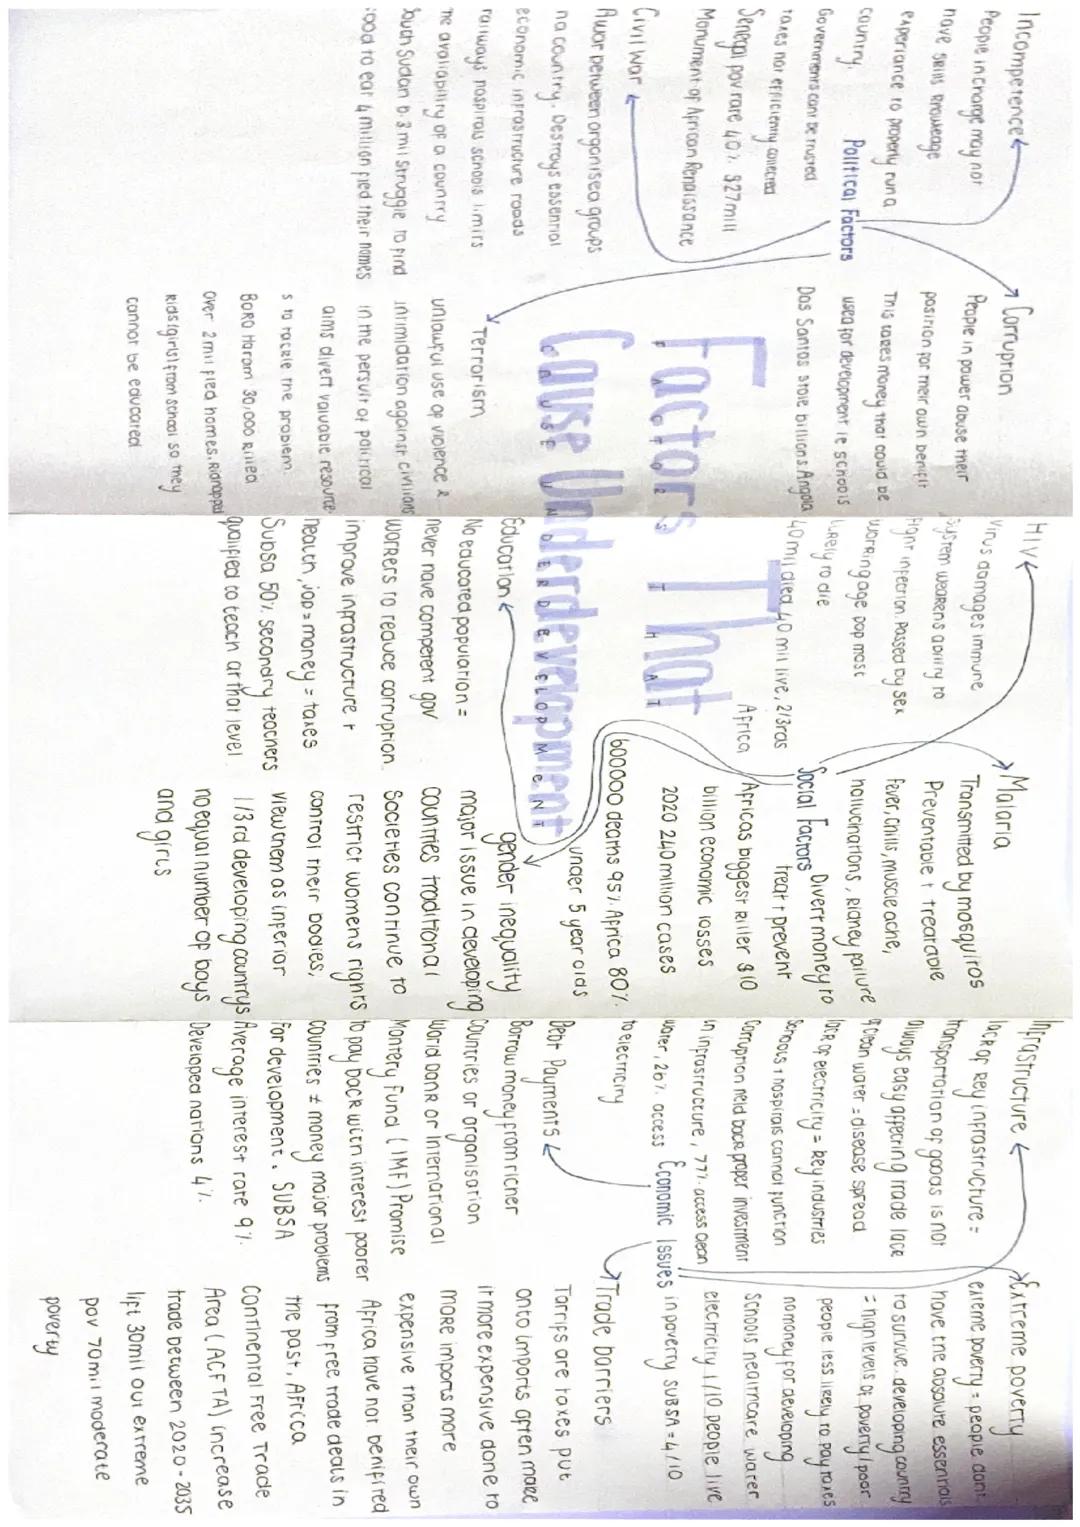 Incompetence
People in charge may not
have skills knowledge
experiance to properly run a
country.
Governments cant be trusted
taxes not efficiently collected
Senegal pov.rate 40% $27mill
Monument of African Renaissance
Political Factors
Corruption
People in power abuse their
position for their own benifit
This takes money that could be
used for development ie schools
Dos Santos stole billions Angola
Civil War
A war between organised groups
in a country. Destroys essential
economic infrastructure roads
railways hospitals schools limits
the avaliability of a country
South Sudan 6.3 mil struggle to find
food to eat 4 million fled their homes
Terrorism
unlawful use of violence &
intimidation against civilians
in the persuit of political
aims divert valuable resource
s to tackle the problem.
Boko Haram 30,000 killed
Over 2 mil fled homes. Kidnapped
kids (girls) from school so they
cannot be educated
Factors That
FACTORS THAT
Cause Underdevelopment
CAUSE UNDERDEVELOPMENT
HIV
virus damages immune
system weakens ability to
fight infection. Passed by sex
working age pop most
likely to die
40 mil died 40 mil live, 2/3rds
Africa
Social Factors
Malaria
Transmitted by mosquitos
Preventable + treatable
fever, chills, muscle ache,
hallucinations, kidney failure
Divert money to
treat + prevent
Africas biggest killer $10
billion economic losses
2020 240 million cases
600000 deaths 95% Africa 80%
under 5 year olds
Education
No educated population =
never have competent gov
workers to reduce corruption
improve infrastructure +
health, job = money = taxes
SubSA 50% secondary teachers
qualified to teach at that level
gender inequality
major issue in developing
countries traditional
Societies continue to
restrict womens rights
control their bodies,
view them as inferior
1/3rd developing countrys
no equal number of boys
and girls
Infrastructure
lack of key infrastructure =
transportation of goods is not
always easy affecting trade lace
of clean water = disease spread
lack of electricity = key industries
Schools + hospitals cannot function
Corruption held back proper investment
in infrastructure, 77% access clean
water, 26% access
to electricity
Economic Issues
Extreme poverty
exteme poverty = people dont
have the absolute essentials
to survive. developing country
= high levels of poverty / poor
people less likely to pay taxes
no money for developing
schools healthcare water
electricity 1/10 people live
in poverty SUBSA = 4/10
Debt Payments
Borrow money from richer
countries or organisation
World bank or International
Montery Fund (IMF) Promise
to pay back with interest poorer
countries ≠ money major problems
for development. SUBSA
Average interest rate 9%.
Developed nations 4%.
Trade barriers
Tarrifs are taxes put
onto imports often make
it more expensive done to
make imports more
expensive than their own
Africa have not benifited
from free trade deals in
the past, Africa
Continental Free Trade
Area (ACFTA) increase
trade between 2020-2035
lift 30mil out extreme
pov 70mil moderate
poverty